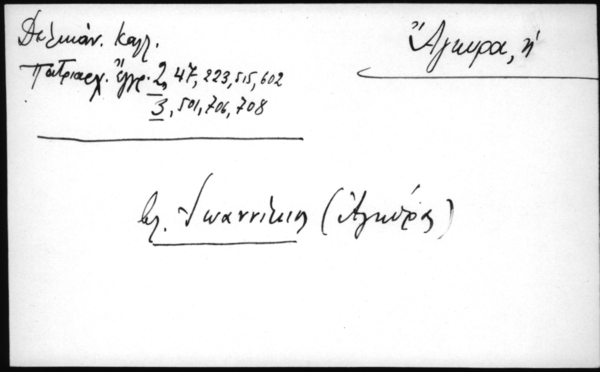 Δελικάν. Καλλ.
Πατριαρχ. Ἔγγρ. 2, 47, 223, 515, 602
3, 501, 706, 708
Ἄγκυρα, ἡ
βλ. Ἰωαννίκιος (Ἀγκύρας)